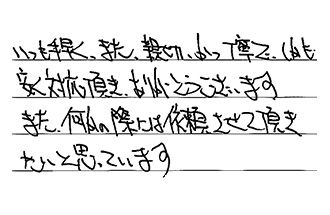 いつも早く、また、親切、かつ丁寧で、しかも
安く対応頂き、ありがとうございます
また、何かの際には依頼させて頂き
たいと思っています